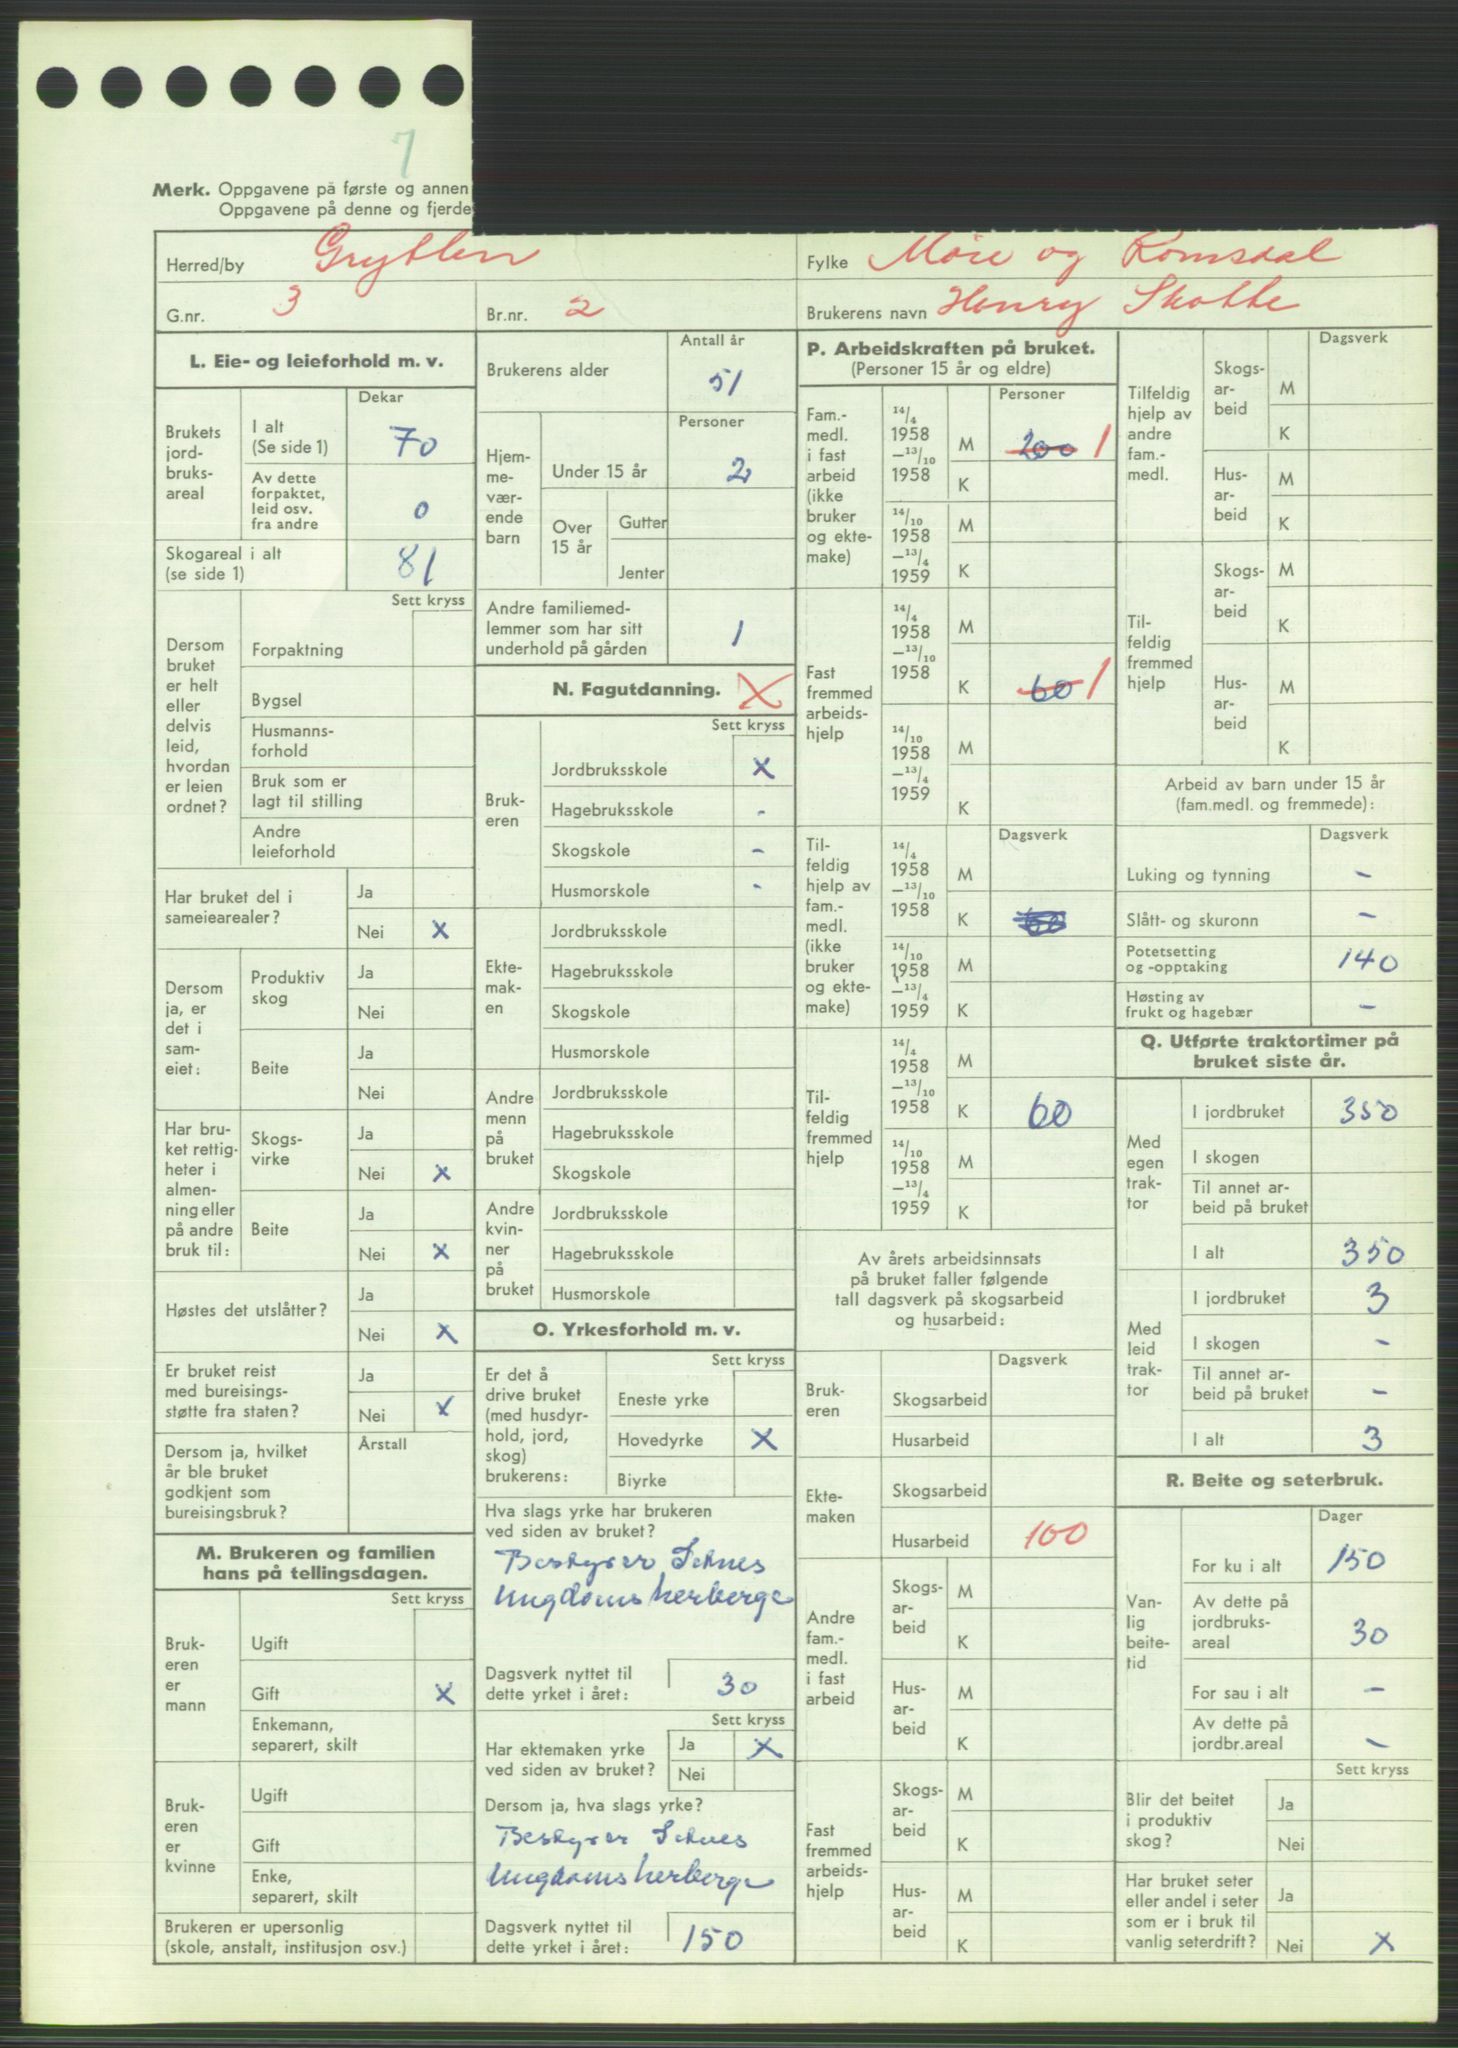 7
Merk. Oppgavene på første og annen
Oppgavene på denne og fjerde
Herred/by Grytten
Fylke Møre og Romsdal
G.nr. 3
Br.nr. 2
Brukerens navn Henry Skotte
L. Eie- og leieforhold m. v.
Dekar
Brukets jord- bruks- areal
I alt (Se side 1) 70
Av dette forpaktet, leid osv. fra andre 0
Skogareal i alt (se side 1) 81
Sett kryss
Dersom bruket er helt eller delvis leid, hvordan er leien ordnet?
Forpaktning
Bygsel
Husmanns- forhold
Bruk som er lagt til stilling
Andre leieforhold
Har bruket del i sameiearealer?
Ja
Nei x
Dersom ja, er det i sam- eiet:
Produktiv skog
Ja
Nei
Beite
Ja
Nei
Har bru- ket rettig- heter i almen- ning eller på andre bruk til:
Skogs- virke
Ja
Nei x
Beite
Ja
Nei x
Høstes det utslåtter?
Ja
Nei x
Er bruket reist med bureisings- støtte fra staten?
Ja
Nei x
Dersom ja, hvilket år ble bruket godkjent som bureisingsbruk?
Årstall
M. Brukeren og familien hans på tellingsdagen.
Sett kryss
Bruk- eren er mann
Ugift
Gift x
Enkemann, separert, skilt
Bruk- eren er kvinne
Ugift
Gift
Enke, separert, skilt
Brukeren er upersonlig (skole, anstalt, institusjon osv.)
Antall år
Brukerens alder 51
Personer
Hjem- me- vær- ende barn
Under 15 år 2
Over 15 år
Gutter
Jenter
Andre familiemed- lemmer som har sitt underhold på gården 1
N. Fagutdanning. X
Sett kryss
Bruk- eren
Jordbruksskole x
Hagebruksskole -
Skogskole -
Husmorskole -
Ekte- mak- en
Jordbruksskole
Hagebruksskole
Skogskole
Husmorskole
Andre menn på bruket
Jordbruksskole
Hagebruksskole
Skogskole
Andre kvin- ner på bruket
Jordbruksskole
Hagebruksskole
Husmorskole
O. Yrkesforhold m. v.
Sett kryss
Er det å drive bruket (med husdyr- hold, jord, skog) brukerens:
Eneste yrke
Hovedyrke x
Biyrke
Hva slags yrke har brukeren ved siden av bruket?
Bestyrer Setnes
Ungdomsherberge
Dagsverk nyttet til dette yrket i året: 30
Sett kryss
Har ektemaken yrke ved siden av bruket?
Ja x
Nei
Dersom ja, hva slags yrke?
Bestyrer Setnes
Ungdomsherberge
Dagsverk nyttet til dette yrket i året: 150
P. Arbeidskraften på bruket.
(Personer 15 år og eldre)
Personer
Fam.- medl. i fast arbeid (ikke bruker og ekte- make)
14/4 1958 –13/10 1958
M 200 1
K
14/10 1958 –13/4 1959
M
K
Fast fremmed arbeids- hjelp
14/4 1958 –13/10 1958
M
K 60 1
14/10 1958 –13/4 1959
M
K
Dagsverk
Til- feldig hjelp av fam.- medl. (ikke bruker og ekte- make)
14/4 1958 –13/10 1958
M
K 60
14/10 1958 –13/4 1959
M
K
Til- feldig fremmed hjelp
14/4 1958 –13/10 1958
M
K 60
14/10 1958 –13/4 1959
M
K
Av årets arbeidsinnsats på bruket faller følgende tall dagsverk på skogsarbeid og husarbeid:
Dagsverk
Bruk- eren
Skogsarbeid
Husarbeid
Ekte- maken
Skogsarbeid
Husarbeid 100
Andre fam.- medl. i fast arbeid
Skogs- ar- beid
M
K
Hus- ar- beid
M
K
Fast fremmed arbeids- hjelp
Skogs- ar- beid
M
K
Hus- ar- beid
M
K
Dagsverk
Tilfeldig hjelp av andre fam.- medl.
Skogs- ar- beid
M
K
Hus- ar- beid
M
K
Til- feldig fremmed hjelp
Skogs- ar- beid
M
K
Hus- ar- beid
M
K
Arbeid av barn under 15 år (fam.medl. og fremmede):
Dagsverk
Luking og tynning -
Slått- og skuronn -
Potetsetting og -opptaking 140
Høsting av frukt og hagebær -
Q. Utførte traktortimer på bruket siste år.
Med egen trak- tor
I jordbruket 350
I skogen
Til annet ar- beid på bruket
I alt 350
Med leid trak- tor
I jordbruket 3
I skogen -
Til annet ar- beid på bruket -
I alt 3
R. Beite og seterbruk.
Dager
Van- lig beite- tid
For ku i alt 150
Av dette på jordbruks- areal 30
For sau i alt -
Av dette på jordbr.areal -
Sett kryss
Blir det beitet i produktiv skog?
Ja
Nei
Har bruket seter eller andel i seter som er i bruk til vanlig seterdrift?
Ja
Nei x